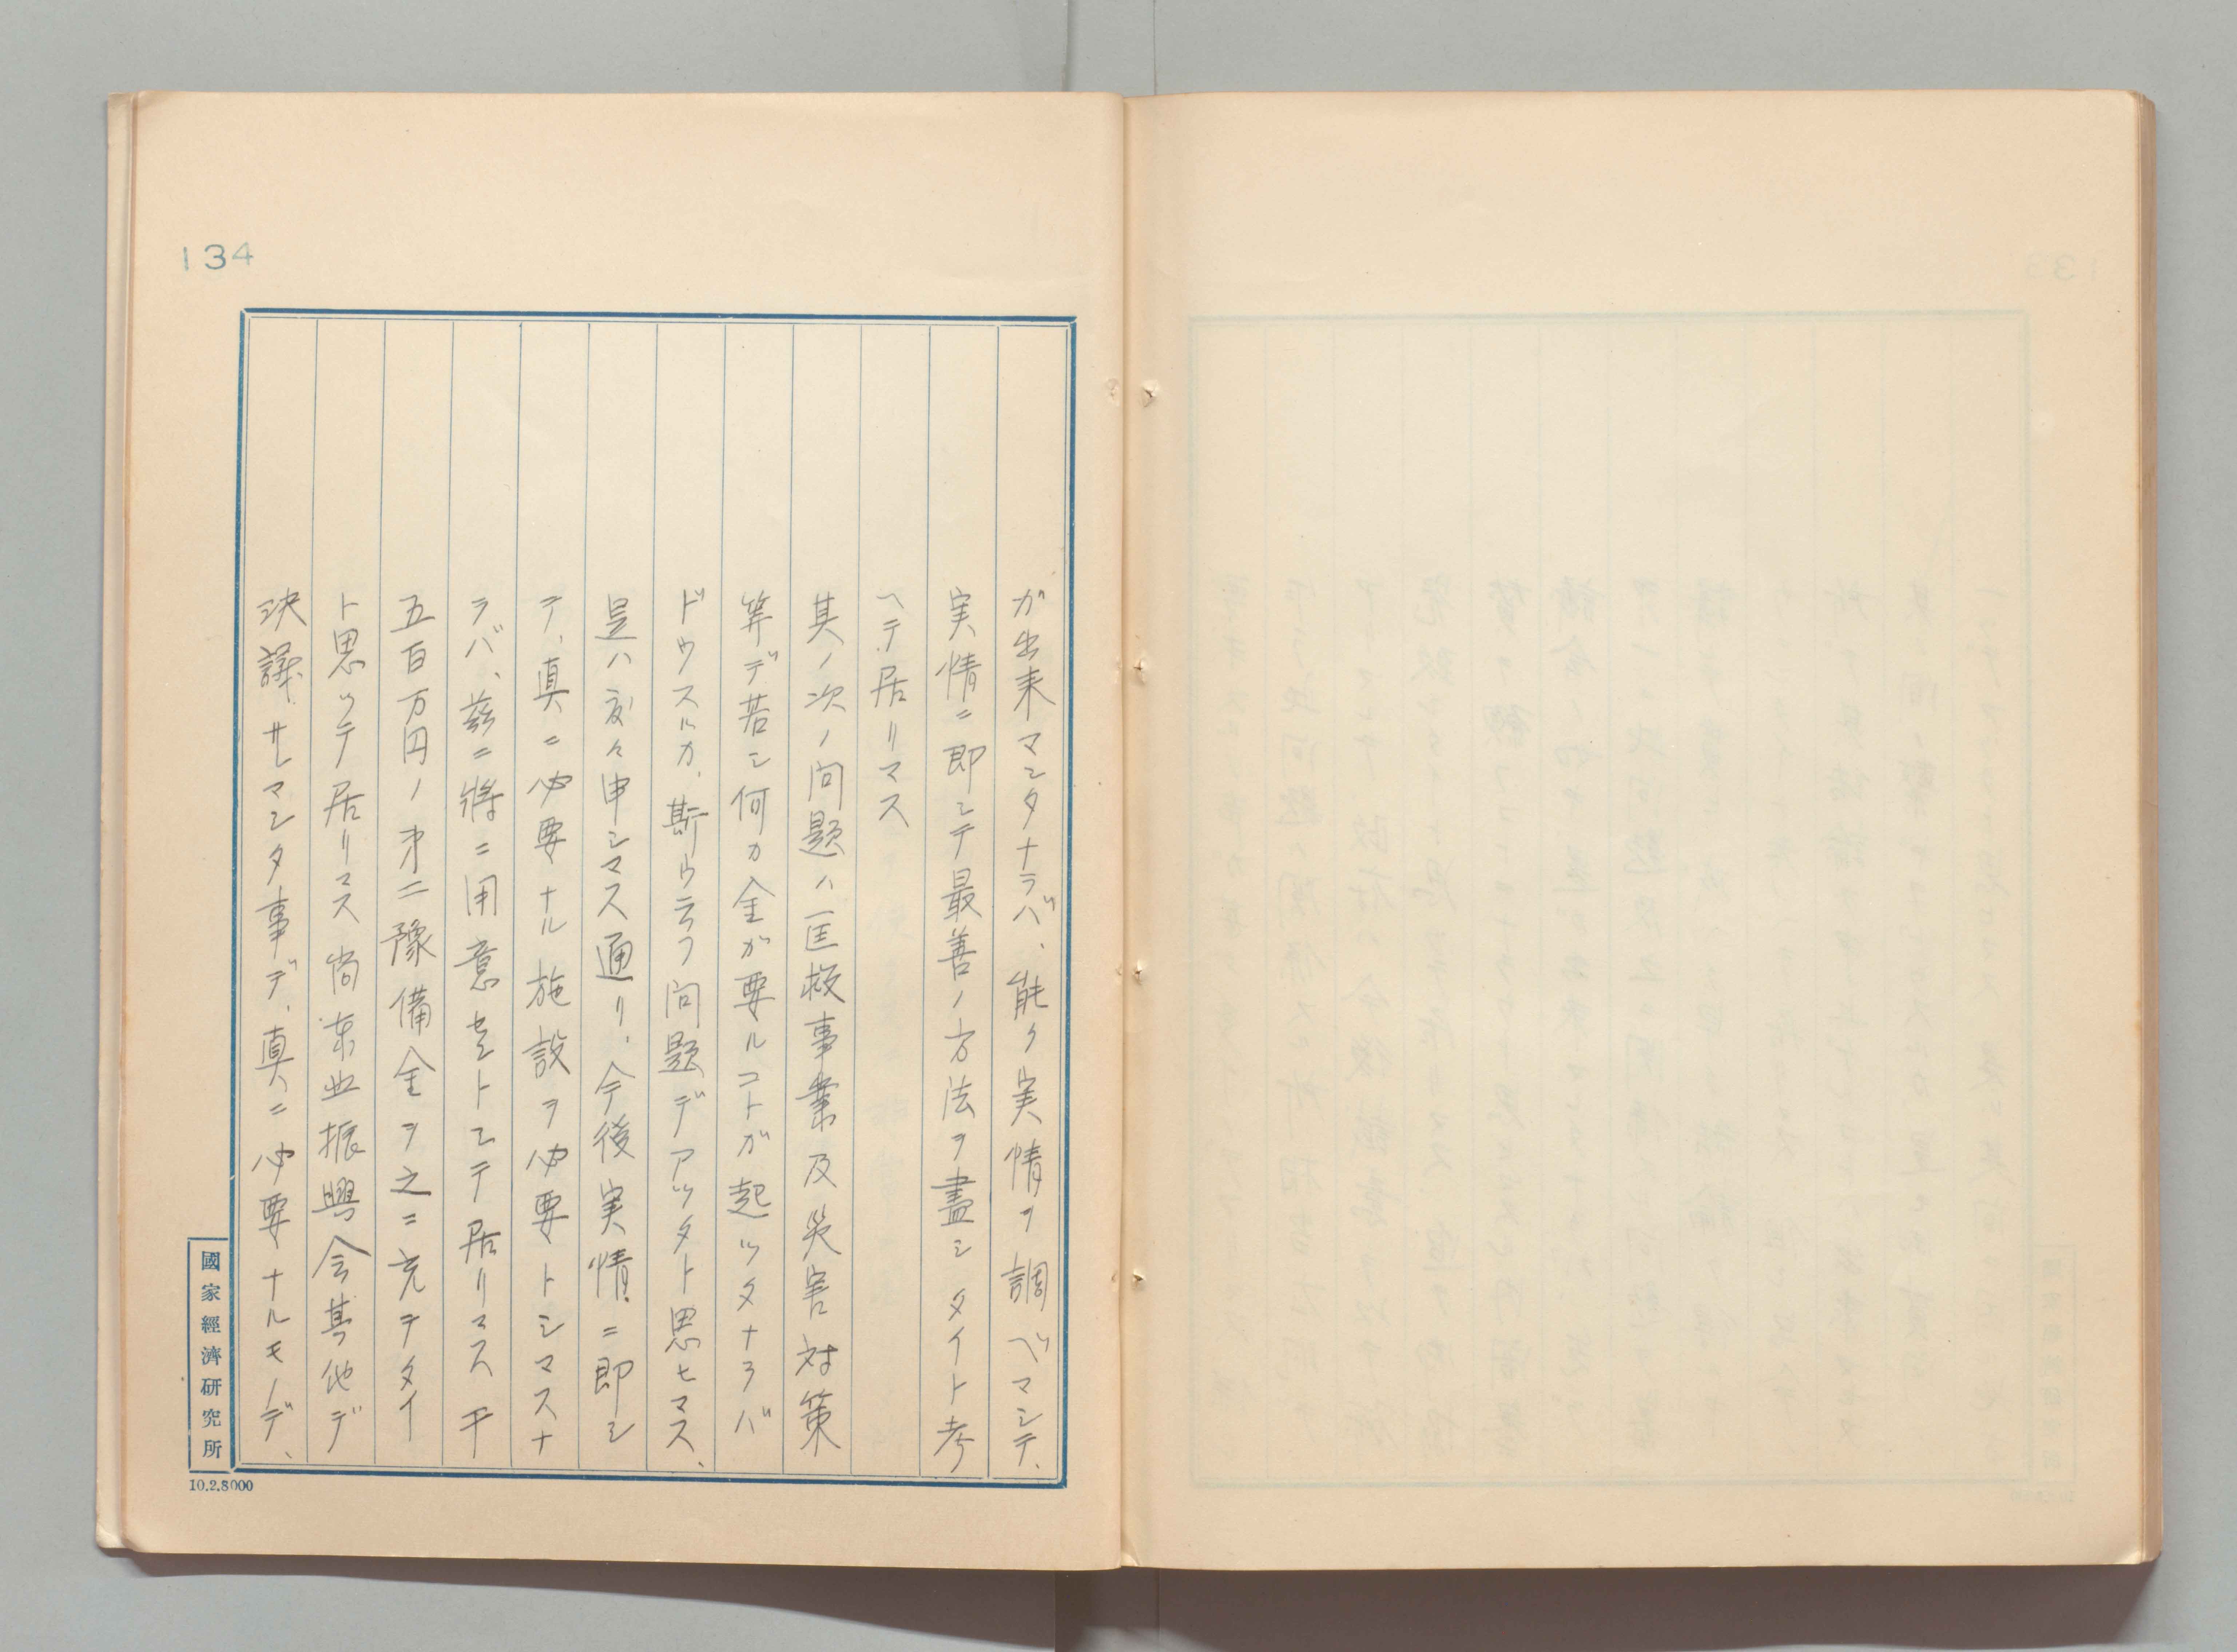 134
ガ出来マシタナラバ、能ク実情ヲ調ベマシテ、
実情ニ即シテ最善ノ方法ヲ盡シタイト考
ヘテ居リマス
其ノ次ノ問題ハ匡救事業及災害対策
等デ若シ何カ金ガ要ルコトガ起ツタナラバ
ドウスルカ、斯ウ云フ問題デアツタト思ヒマス、
是ハ度々申シマス通リ、今後実情ニ即シ
テ、真ニ必要ナル施設ヲ必要トシマスナ
ラバ、茲ニ將ニ用意セントシテ居リマス千
五百万円ノ才二豫備金ヲ之ニ充テタイ
ト思ツテ居リマス尚東北振興会其他デ
決議サレマシタ事デ、真ニ必要ナルモノデ、
國家經濟研究所
10.2.8000